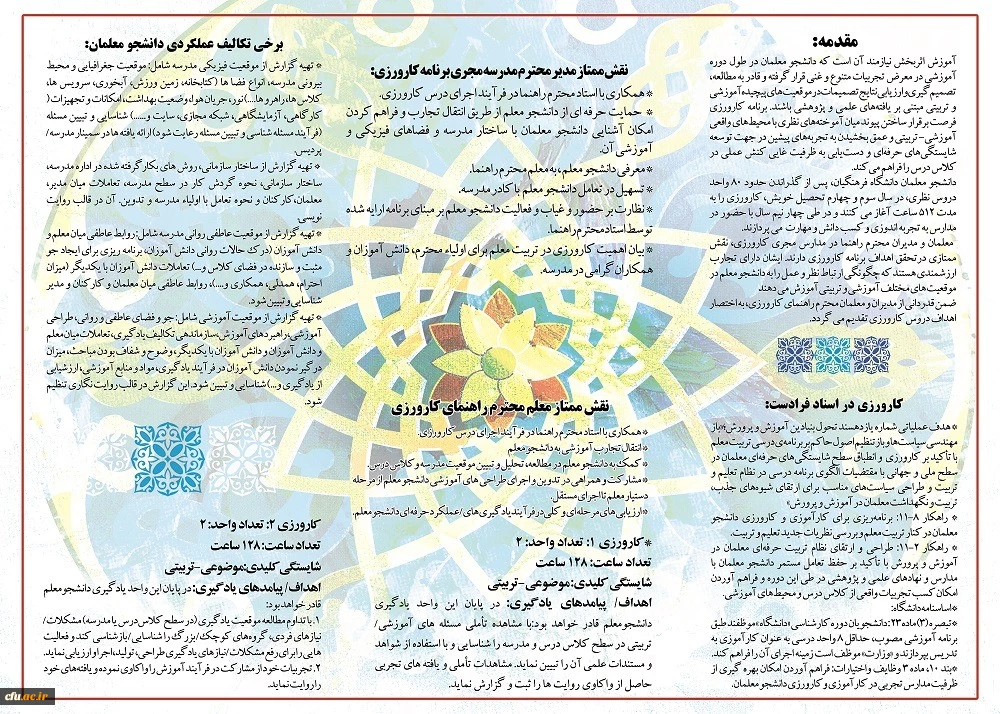 مقدمه:
آموزش اثربخش نیازمند آن است که دانشجو معلمان در طول دوره
آموزشی در معرض تجربیات متنوع و غنی قرار گرفته و قادر به مطالعه،
تصمیم گیری و ارزیابی نتایج تصمیمات در موقعیت های پیچیده آموزشی
و تربیتی مبتنی بر یافته های علمی و پژوهشی باشند. برنامه کارورزی
فرصت برقرار ساختن پیوند میان آموخته های نظری با محیط های واقعی
آموزشی- تربیتی و عمق بخشیدن به تجربه های پیشین در جهت توسعه
شایستگی های حرفه ای و دست یابی به ظرفیت غایی کنش عملی در
کلاس درس را فراهم می کند.
دانشجو معلمان دانشگاه فرهنگیان، پس از گذراندن حدود ۸۰ واحد
دروس نظری، در سال سوم و چهارم تحصیل خویش، کارورزی را به
مدت ۵۱۲ ساعت آغاز می کنند و در طی چهار نیم سال با حضور در
مدارس به تجربه اندوزی و کسب دانش و مهارت می پردازند.
معلمان و مدیران محترم راهنما در مدارس مجری کارورزی، نقش
ممتازی در تحقق اهداف برنامه کارورزی دارند. ایشان دارای تجارب
ارزشمندی هستند که چگونگی ارتباط نظر و عمل را به دانشجو معلم در
موقعیت های مختلف آموزشی و تربیتی آموزش می دهند
ضمن قدردانی از مدیران و معلمان محترم راهنمای کارورزی، به اختصار
اهداف دروس کارورزی تقدیم می گردد.
کارورزی در اسناد فرادست:
*هدف عملیاتی شماره یازده سند تحول بنیادین آموزش و پرورش: «باز
مهندسی سیاست ها و باز تنظیم اصول حاکم بر برنامه ی درسی تربیت معلم
با تأکید بر کارورزی و انطباق سطح شایستگی های حرفه ای معلمان در
سطح ملی و جهانی با مقتضیات الگوی برنامه درسی در نظام تعلیم و
تربیت و طراحی سیاست های مناسب برای ارتقای شیوه های جذب،
تربیت و نگهداشت معلمان در آموزش و پرورش»
* راهکار ۸-۱۱: برنامه ریزی برای کارآموزی و کارورزی دانشجو
معلمان در کنار تربیت معلم و بررسی نظریات جدید تعلیم و تربیت.
* راهکار ۲-۱۱: طراحی و ارتقای نظام تربیت حرفه ای معلمان در
آموزش و پرورش با تأکید بر حفظ تعامل مستمر دانشجو معلمان با
مدارس و نهادهای علمی و پژوهشی در طی این دوره و فراهم آوردن
امکان کسب تجربیات واقعی از کلاس درس و محیط های آموزشی.
*اساسنامه دانشگاه:
*تبصره (۳) ماده ۲۳: دانشجویان دوره کارشناسی «دانشگاه» موظفند طبق
برنامه آموزشی مصوب، حداقل ۸ واحد درسی به عنوان کارآموزی به
تدریس بپردازند و «وزارت» موظف است زمینه اجرای آن را فراهم کند.
*بند ۱۰، ماده ۳ وظایف و اختیارات: فراهم آوردن امکان بهره گیری از
ظرفیت مدارس تجربی در کارآموزی و کارورزی دانشجو معلمان.
نقش ممتاز مدیر محترم مدرسه مجری برنامه کارورزی:
*همکاری با استاد محترم راهنما در فرآیند اجرای درس کارورزی.
* حمایت حرفه ای از دانشجو معلم از طریق انتقال تجارب و فراهم کردن
امکان آشنایی دانشجو معلمان با ساختار مدرسه و فضاهای فیزیکی و
آموزشی آن.
*معرفی دانشجو معلم، به معلم محترم راهنما.
* تسهیل در تعامل دانشجو معلم با کادر مدرسه.
*نظارت بر حضور و غیاب و فعالیت دانشجو معلم بر مبنای برنامه ارایه شده
توسط استاد محترم راهنما.
*بیان اهمیت کارورزی در تربیت معلم برای اولیاء محترم، دانش آموزان و
همکاران گرامی در مدرسه.
نقش ممتاز معلم محترم راهنمای کارورزی
*همکاری با استاد محترم راهنما در فرآیند اجرای درس کارورزی.
*انتقال تجارب آموزشی به دانشجو معلم
*کمک به دانشجو معلم در مطالعه، تحلیل و تبیین موقعیت مدرسه و کلاس درس.
*مشارکت و همراهی در تدوین و اجرای طراحی های آموزشی دانشجو معلم از مرحله
دستیار معلم تا اجرای مستقل.
*ارزیابی های مرحله ای و کلی در فرآیند یادگیری های/ عملکرد حرفه ای دانشجو معلم.
* کارورزی ۱: تعداد واحد: ۲
تعداد ساعت: ۱۲۸ ساعت
شایستگی کلیدی: موضوعی-تربیتی
اهداف/ پیامدهای یادگیری: در پایان این واحد یادگیری
دانشجو معلم قادر خواهد بود: با مشاهده تأملی مسئله های آموزشی/
تربیتی در سطح کلاس درس و مدرسه را شناسایی و با استفاده از شواهد
و مستندات علمی آن را تبیین نماید. مشاهدات تأملی و یافته های تجربی
حاصل از واکاوی روایت ها را ثبت و گزارش نماید.
برخی تکالیف عملکردی دانشجو معلمان:
* تهیه گزارش از موقعیت فیزیکی مدرسه شامل: موقعیت جغرافیایی و محیط
بیرونی مدرسه، انواع فضا ها (کتابخانه، زمین ورزش، آبخوری، سرویس ها،
کلاس ها، راهرو ها...) نور، جریان هوا، وضعیت بهداشت، امکانات و تجهیزات (
کارگاهی، آزمایشگاهی، شبکه مجازی، سایت و.....) شناسایی و تبیین مسئله
(فرآیند مسئله شناسی و تبیین مسئله رعایت شود) ارائه یافته ها در سمینار مدرسه/
پردیس.
* تهیه گزارش از ساختار سازمانی، روش های بکار گرفته شده در اداره مدرسه،
ساختار سازمانی، نحوه گردش کار در سطح مدرسه، تعاملات میان مدیر،
معلمان، کارکنان و نحوه تعامل با اولیاء مدرسه و تدوین. آن در قالب روایت
نویسی.
*تهیه گزارش از موقعیت عاطفی روانی مدرسه شامل: روابط عاطفی میان معلم و
دانش آموزان (درک حالات روانی دانش آموزان، برنامه ریزی برای ایجاد جو
مثبت و سازنده در فضای کلاس و...) تعاملات دانش آموزان با یکدیگر (میزان
احترام، همدلی، همکاری و....)، روابط عاطفی میان معلمان و کارکنان و مدیر
شناسایی و تبیین شود.
* تهیه گزارش از موقعیت آموزشی شامل: جو و فضای عاطفی و روانی، طراحی
آموزشی، راهبردهای آموزش، سازماندهی تکالیف یادگیری، تعاملات میان معلم
و دانش آموزان و دانش آموزان با یکدیگر، وضوح و شفاف بودن مباحث، میزان
درگیر نمودن دانش آموزان در فرآیند یادگیری، مواد و منابع آموزشی، ارزشیابی
از یادگیری و...) شناسایی و تبیین شود. این گزارش در قالب روایت نگاری تنظیم
شود.
کارورزی ۲: تعداد واحد: ۲
تعداد ساعت: ۱۲۸ ساعت
شایستگی کلیدی: موضوعی-تربیتی
اهداف/ پیامدهای یادگیری: در پایان این واحد یادگیری دانشجو معلم
قادر خواهد بود:
۱. با تداوم مطالعه موقعیت یادگیری (در سطح کلاس درس یا مدرسه) مشکلات/
نیازهای فردی، گروه های کوچک/ بزرگ را شناسایی/ بازشناسی کند و فعالیت
هایی را برای رفع مشکلات/ نیازهای یادگیری طراحی، تولید، اجرا و ارزیابی نماید.
۲. تجربیات خود از مشارکت در فرآیند آموزش را واکاوی نموده و یافته های خود
را روایت نماید.
cfu.ac.ir